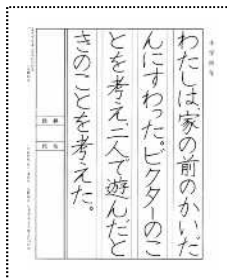 わたしは、家の前のかいだ
んにすわった。ビクターのこ
とを考え、二人で遊んだと
きのことを考えた。